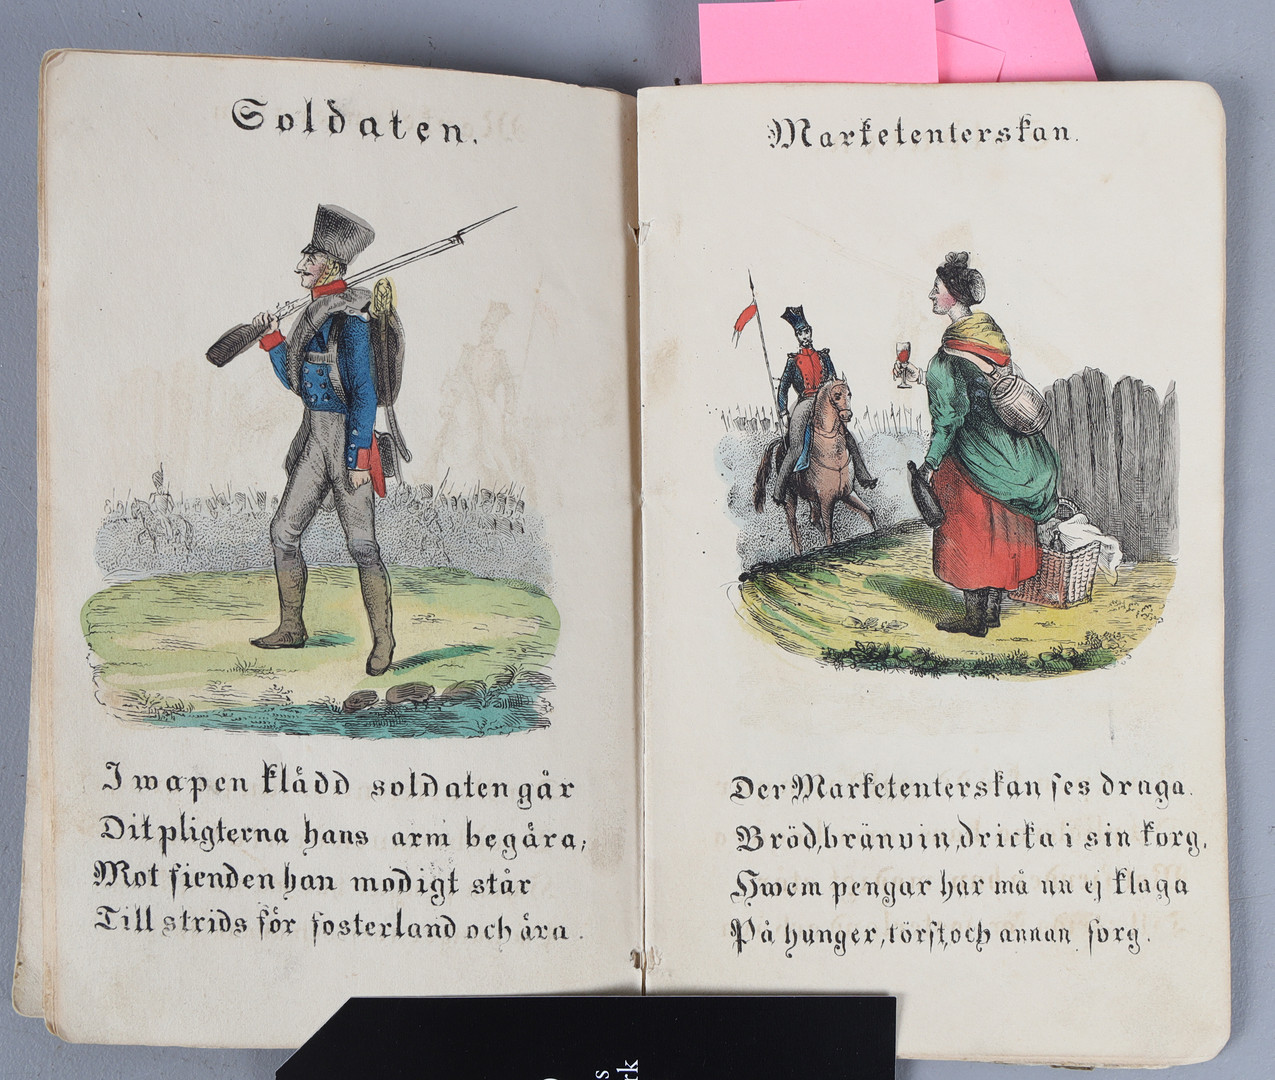 Soldaten.
I wapen klädd soldaten går
Dit pligterna hans arm begära;
Mot fienden han modigt står
Till strids för fosterland och ära.
Marketenterskan.
Der Marketenterskan ses draga
Bröd, bränvin, dricka i sin korg,
Hwem pengar har må nu ej klaga
På hunger, törst, och annan sorg.